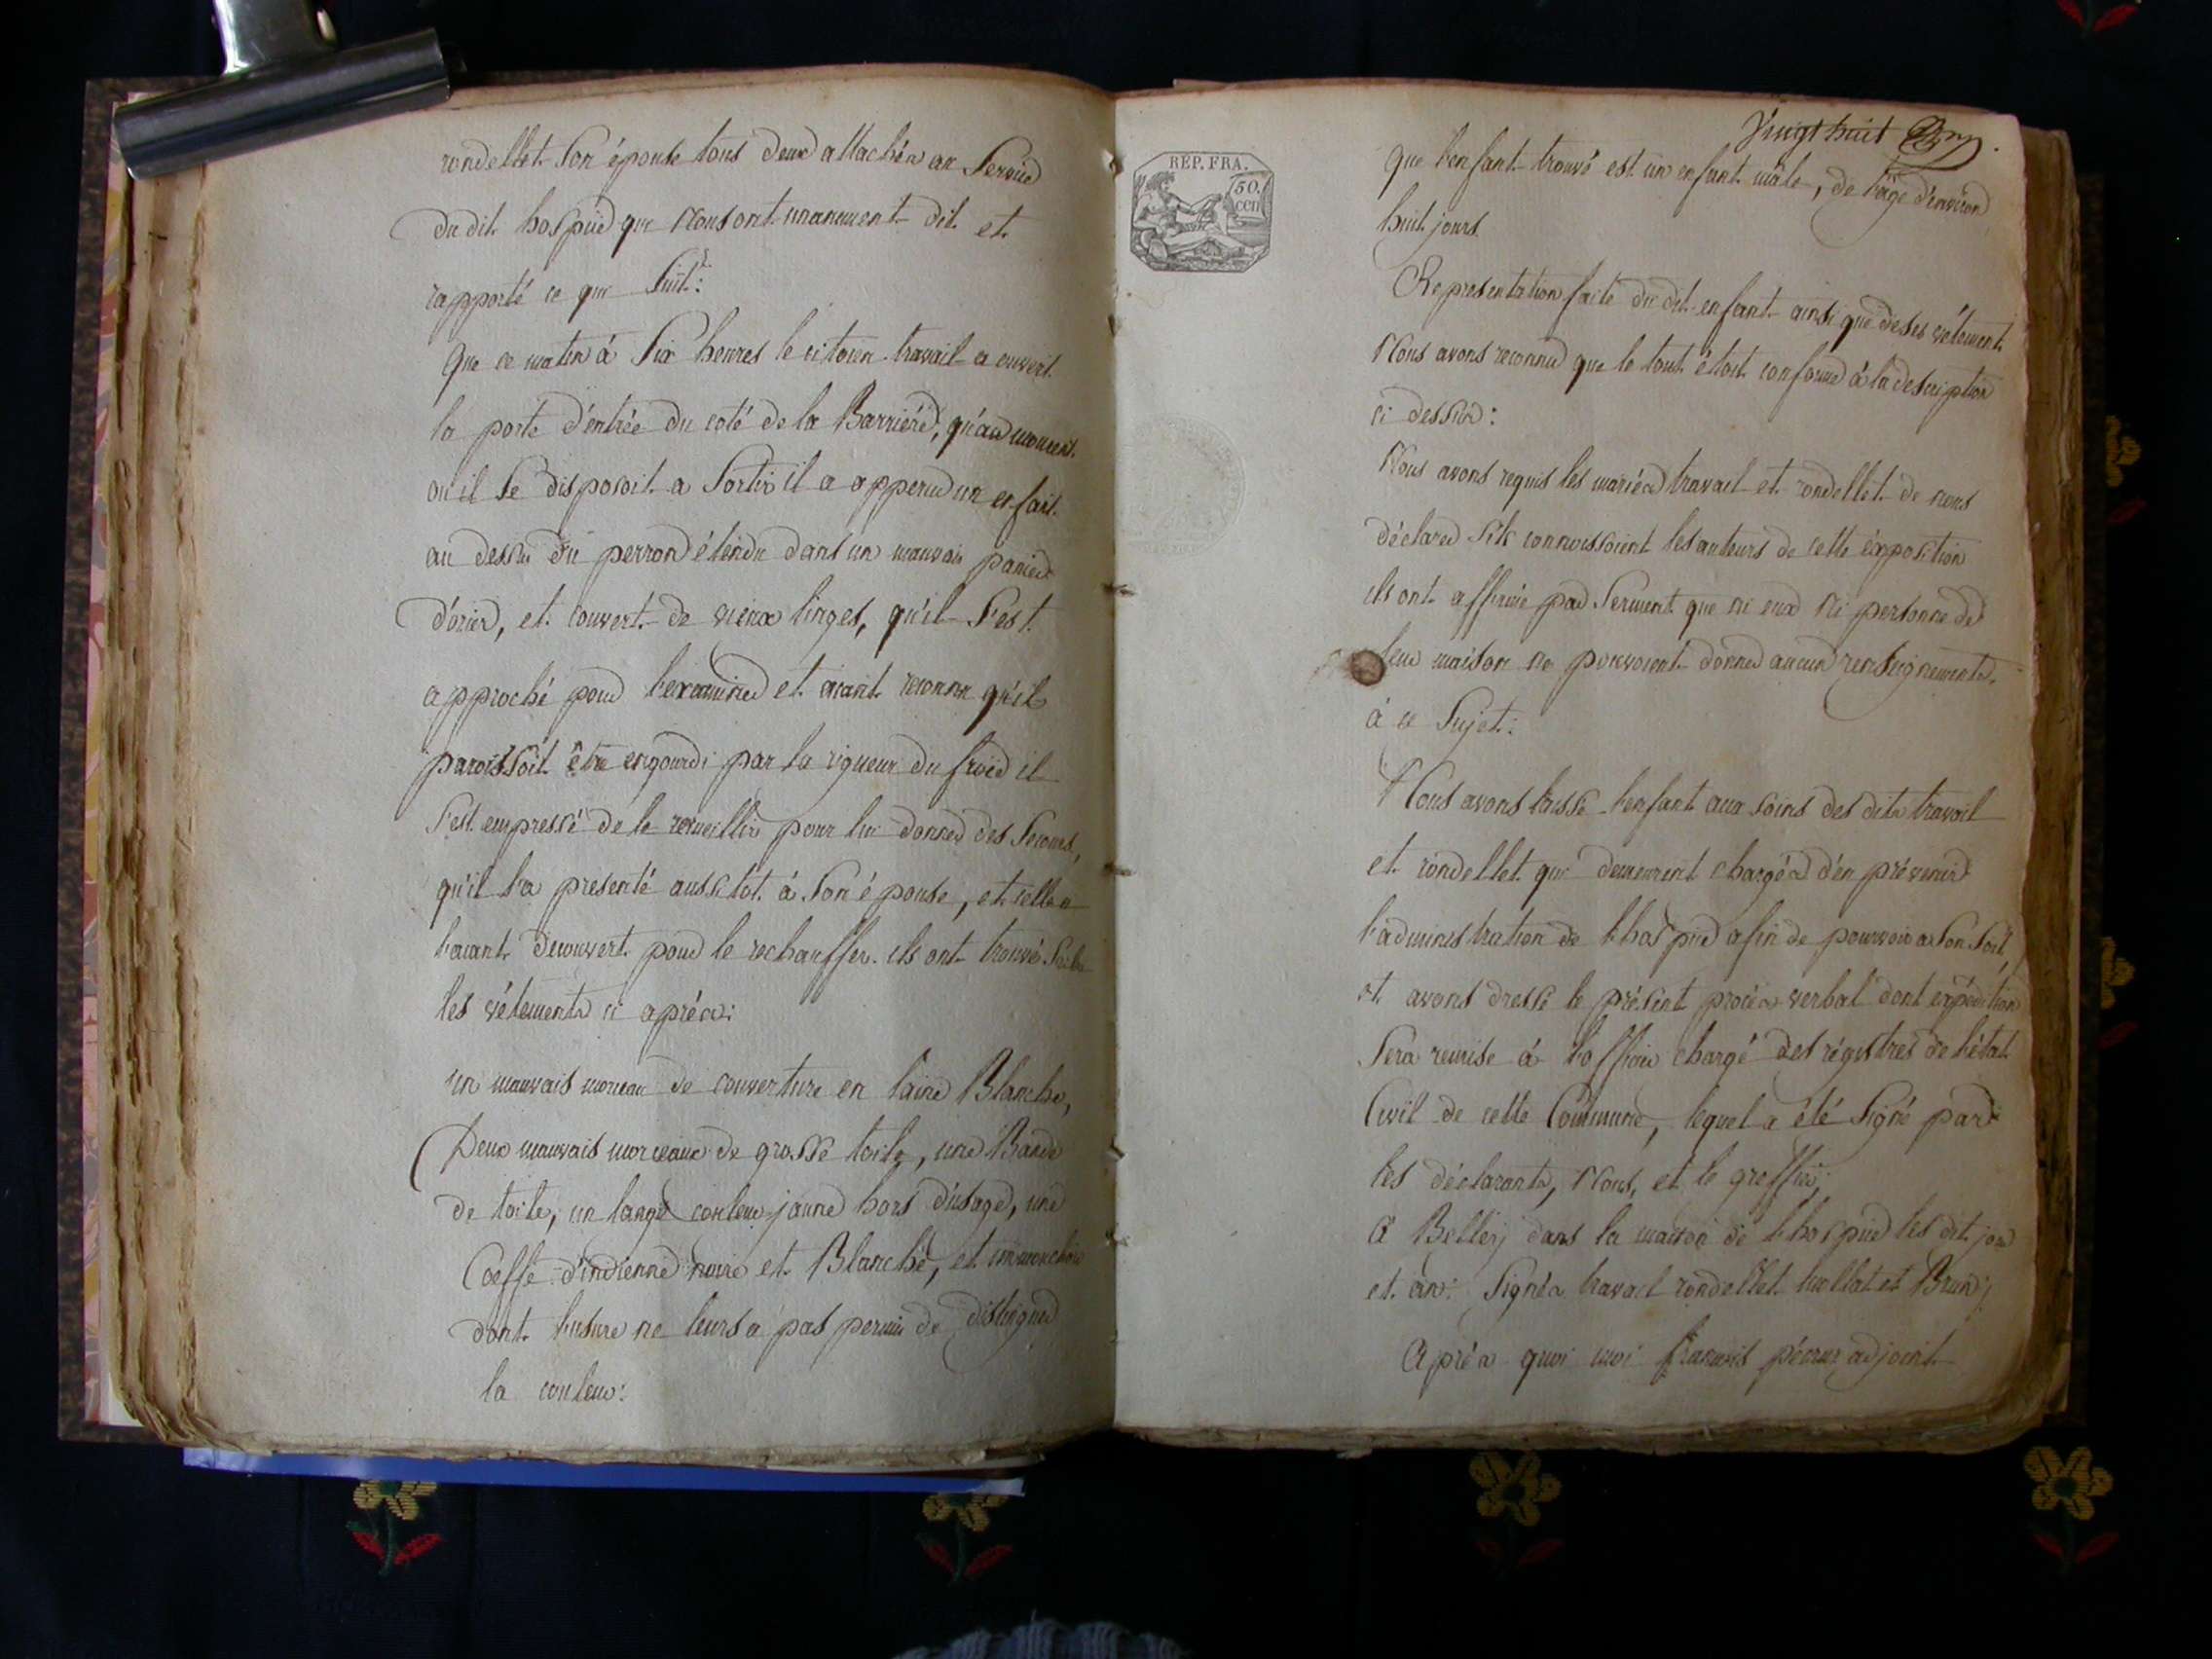 rondellet son épouse tous deux attachés au service
du dit hospice que nous ont unanimement dit et
rapporté ce qui suit:
que ce matin à six heures le citoien travail a ouvert
la porte d'entrée du coté de la Barriére, qu'au moment
ou il se disposoit a sortir il a apperçu un enfant
au dessus du perron étendu dans un mauvais panier
d'ozier, et couvert de vieux linges, qu'il s'est
approché pour l'examiner et aiant reconnu qu'il
paroissoit être engourdi par la rigueur du froid il
s'est empressé de le recueillir pour lui donner des secours,
qu'il l'a presenté aussitôt à son épouse, et celle a
l'aiant decouvert pour le rechauffer ils ont trouvé
les vêtements ci aprés:
un mauvais morceau de couverture en laine Blanche,
Deux mauvais morceaux de grosse toile, une Bande
de toile, un lange couleur jaune hors d'usage, une
Coeffe d'indienne noire et Blanche, et un mouchoir
dont l'usure ne leurs a pas permis de distinguer
la couleur:
Vingt huit
RÉP. FRA.
50.
cen
que l'enfant trouvé est un enfant mâle, de l'age d'environ
huit jours
Representation faite du dit enfant ainsi que de ses vêtement
Nous avons reconnu que le tout étoit conforme à la description
ci dessus:
Nous avons requis les mariés travail et rondellet de nous
déclarer s'ils connoissoient les auteurs de cette exposition
ils ont affirmé par serment que ni eux ni personne de
leur maison ne pouvoient donner aucun renseignements
à ce sujet:
Nous avons laissé l'enfant aux soins des dits travail
et rondellet qui demeurent chargés d'en prévenir
l'administration de l'hospice afin de pourvoir a son sort,
et avons dressé le présent procés verbal dont expédition
sera remise à l'officier chargé des régistres de l'état
Civil de cette Commune, lequel a été signé par
les déclarants, Nous, et le greffier;
à Belley dans la maison de l'hospice les dit jour
et an: signés travail rondellet mollat et Brun;
Aprés quoi moi françois adjoint